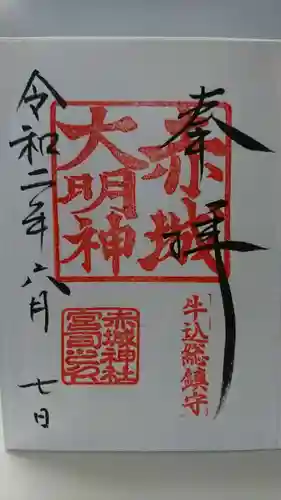 奉拝
赤城
大明神
牛込総鎮守
赤城神社
宮司之印
令和二年六月七日